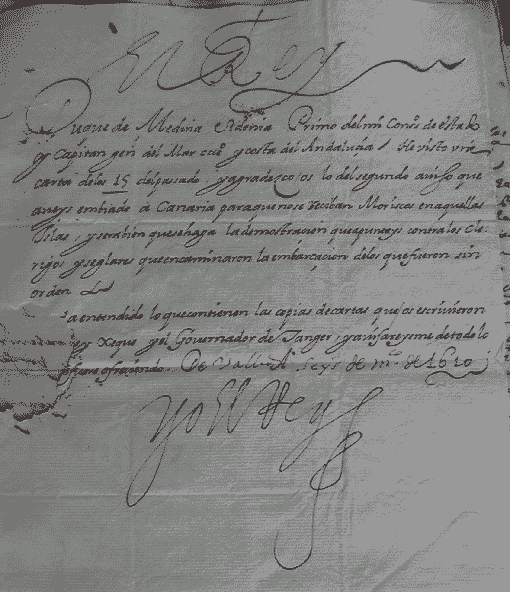 El Rey
Duque de Medina Sidonia Primo del mi Cons.o de estado
y Capitan gen.l del Mar occ.o y costa del Andaluçia / He visto vrã
carta de los 15 del passado, y agradezco os lo del segundo auiso que
aueys embiado á Canaria para que no se reciban Moriscos en aquellas
Islas, y sera bien que se haga la demostracion que apuntays contra los Cle-
rigos y seglares que encaminaron la embarcaçion de los que fueron sin
orden
entendido lo que contienen las copias de cartas que os escriuieron
Xeque y el Gouernador de Tanger, y auisareysme de todo lo
ofreciendo. De Vall.d a seys de m.ço de 1610
Yo el Rey